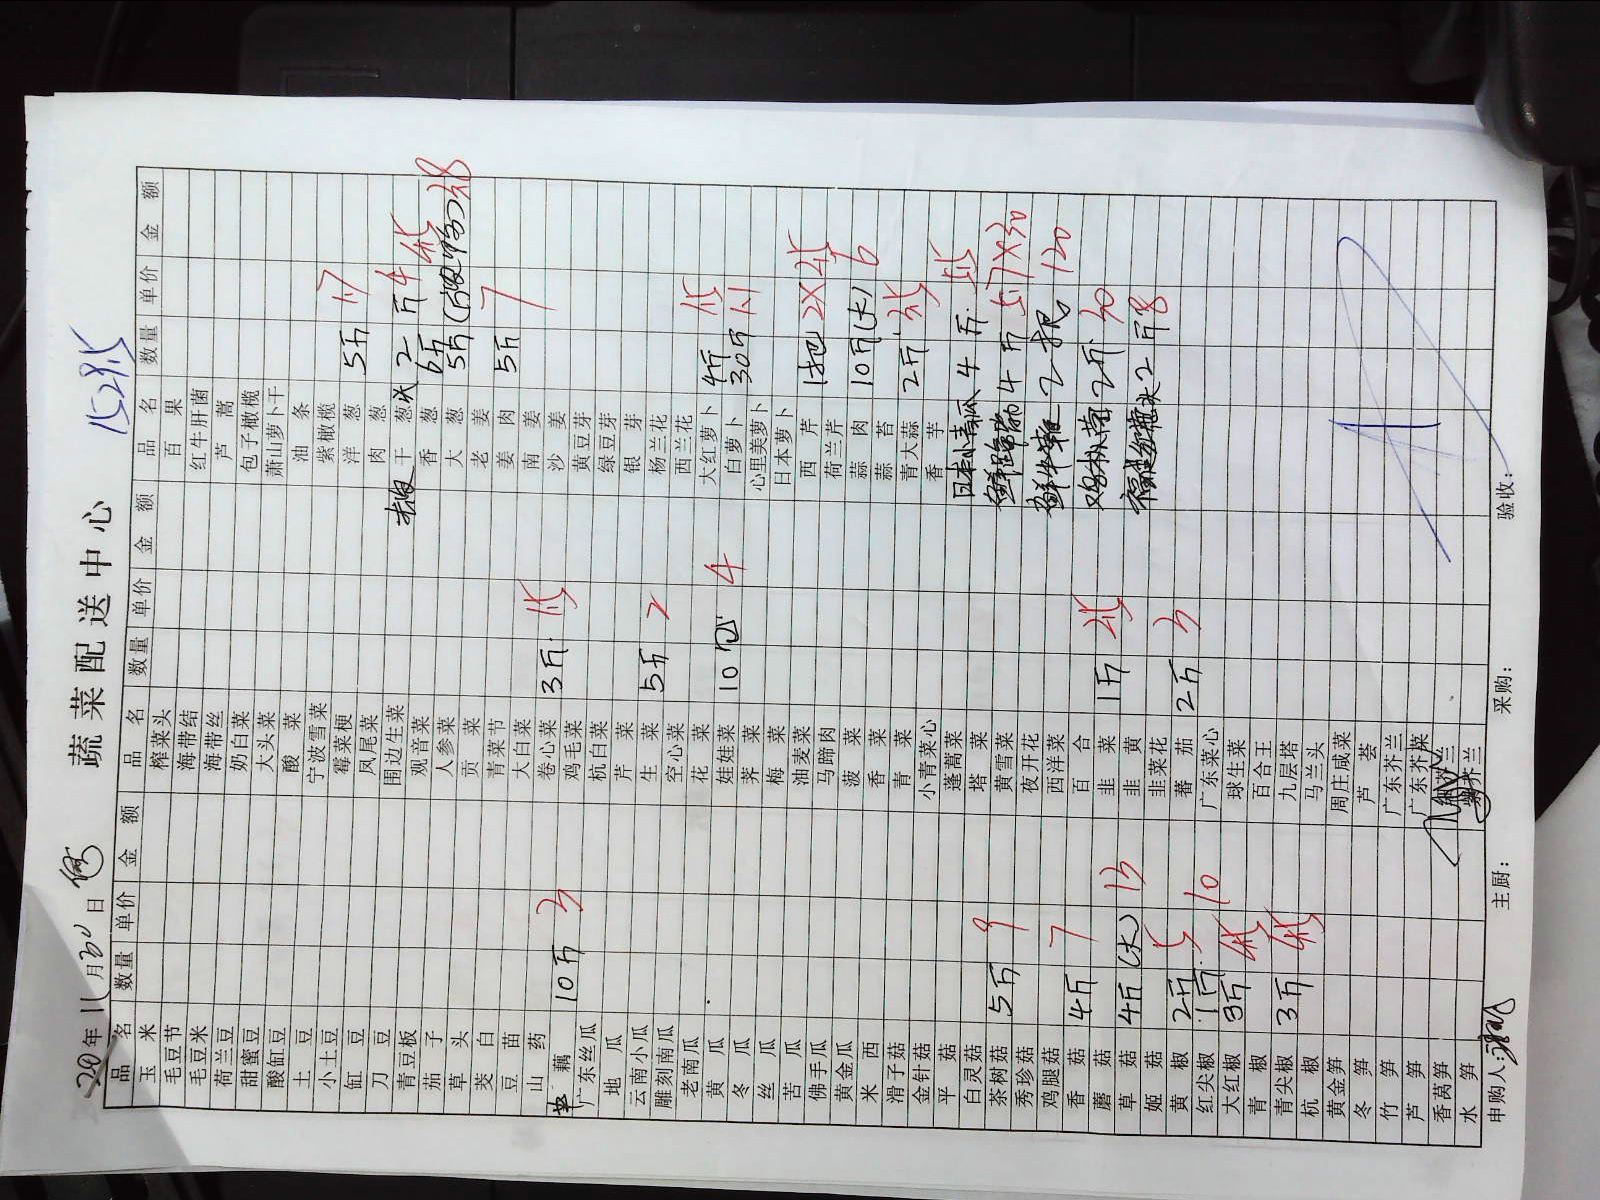 1528.5
蔬菜配送中心
2020年11月30日
品名 数量 单价 金额 品名 数量 单价 金额 品名 数量 单价 金额
玉米 榨菜头 百果
毛豆节 海带结 红牛肝菌
毛豆米 海带丝 芦蒿
荷兰豆 奶白菜 包子橄榄
甜蜜豆 大头菜 萧山萝卜干
酸缸豆 酸菜 油条
土豆 宁波雪菜 紫橄榄
小土豆 霉菜梗 洋葱 5斤 1.7
缸豆 凤尾菜 肉葱
刀豆 围边生菜 干葱头 2斤 4
青豆板 观音菜 香葱 6斤 4.5
茄子 人参菜 大葱 5斤 3.8
草头 贡菜 老姜
茭白 青菜节 姜肉 5斤 7
豆苗 大白菜 南姜
山药 卷心菜 3斤 1.5 沙姜
藕 10斤 3 鸡毛菜 黄豆芽
广东丝瓜 杭白菜 绿豆芽
地瓜 芹菜 银芽
云南小瓜 生菜 5斤 2 杨兰花
雕刻南瓜 空心菜 西兰花
老南瓜 花菜 大红萝卜 4斤 1.5
黄瓜 娃娃菜 10包 4 白萝卜 30斤 1.1
冬瓜 荠菜 心里美萝卜
丝瓜 梅菜 日本萝卜
苦瓜 油麦菜 西芹 1把 2×2.5
佛手瓜 马蹄肉 荷兰芹
黄金瓜 菠菜 蒜肉 10斤(大) 6
米西 香菜 蒜苔
滑子菇 青菜 青大蒜 2斤 3.5
金针菇 小青菜心 香芋
平菇 蓬蒿菜 日本小青瓜 4斤 5.5
白灵菇 塔菜
茶树菇 5斤 9 黄雪菜 4斤 5.7×30
秀珍菇 夜开花
鸡腿菇 西洋菜 2把 120
香菇 4斤 7 百合
蘑菇 韭菜 1斤 2.5 2斤 30
草菇 4斤(大) 13 韭黄
姬菇 韭菜花 福建红葱头 2斤 8
黄椒 2斤 5 蕃茄 2斤 3
红尖椒 1斤 10 广东菜心
大红椒 3斤 4.5 球生菜
青椒 百合王
青尖椒 3斤 4.5 九层塔
杭椒 马兰头
黄金笋 周庄咸菜
冬笋 芦荟
竹笋 广东芥兰
芦笋 广东芥菜
香莴笋
水笋 芥兰
申购人: 主厨: 采购: 验收: